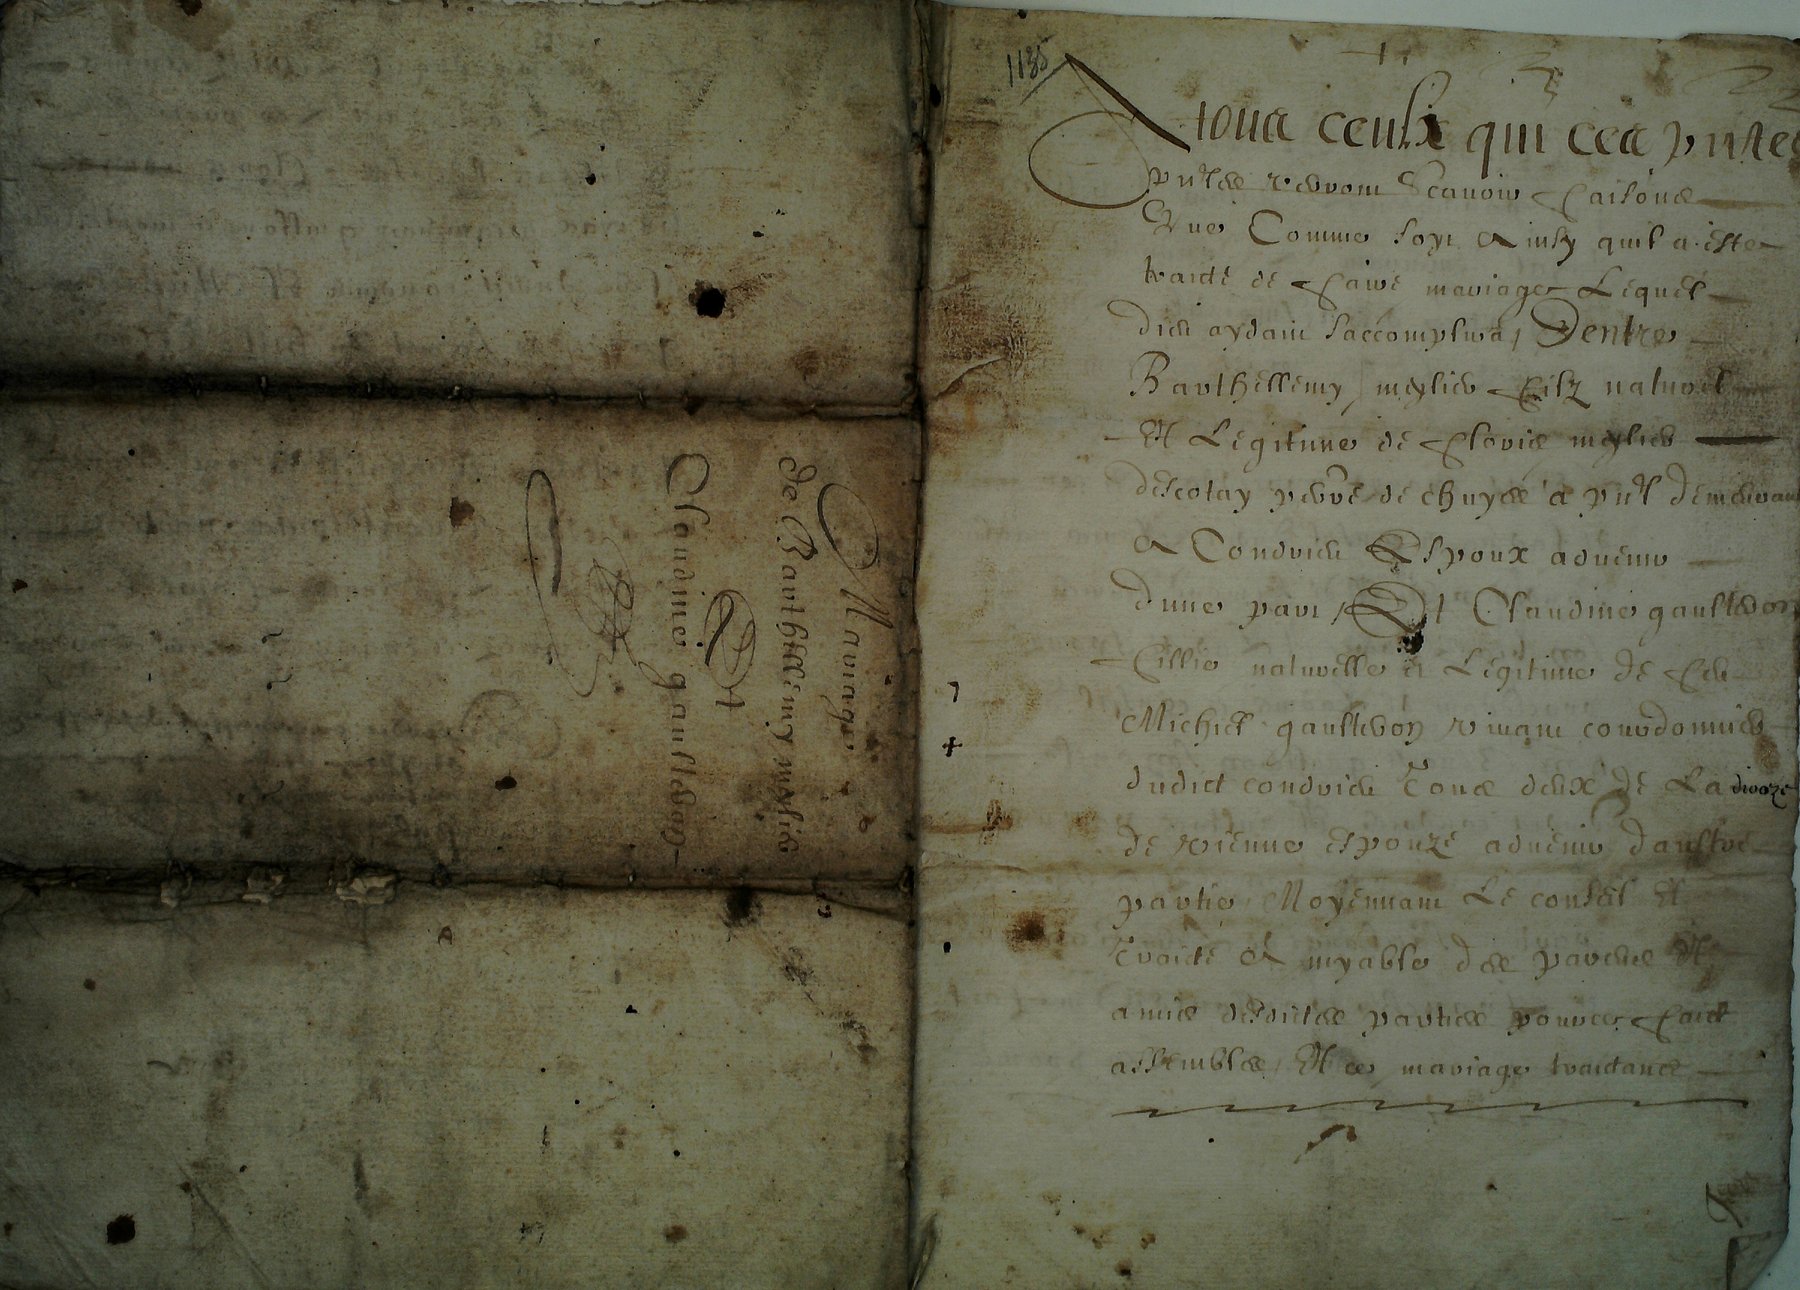 Mariage
de Barthellemy meylier
Et
Claudine gaulteron
1135
A tous ceulx qui ces pntes
pntes verront Scavoir faisons
Que Comme soyt Ainsy quil a este
traicte de faire mariage Lequel
dieu aydant saccomplira / Dentre
Barthellemy meylier filz naturel
Et Legitime de floris meylier
descotay de chuyes a pnt demeurant
A Condrieu Espoux advenir
dune part / Et Claudine gaulteron
fillie naturelle et Legitime de feu
Michiel gaulteron vivant courdonnier
dudict condrieu Tous deux de La dioceze
de vienne espouze advenir daultre
partie Moyennant Le conseil Et
Traicte Amyable des parens Et
amis desdictes parties pource faict
assembles Et ce mariage traictans